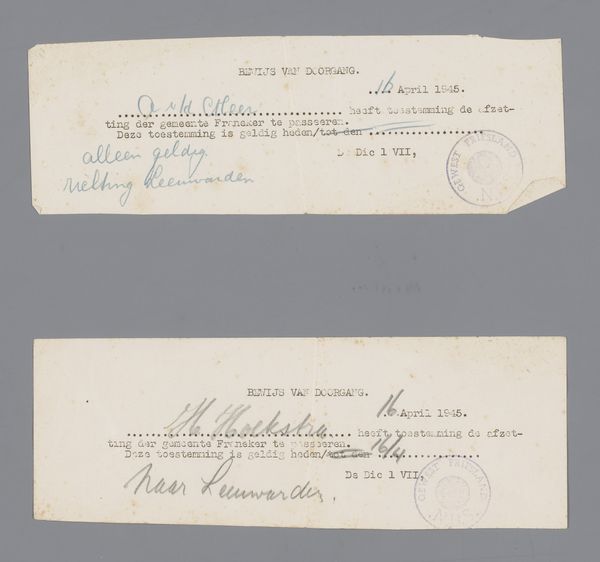 BEWIJS VAN DOORGANG.
16 April 1945.
heeft toestemming de afzet-
ting der gemeente Franeker te passeeren.
Deze toestemming is geldig heden/tot den
De Dic 1 VII,
alleen geldig
richting Leeuwarden
GEWEST FRIESLAND
.N.
BEWIJS VAN DOORGANG.
16 April 1945.
M. Hoekstra heeft toestemming de afzet-
ting der gemeente Franeker te passeeren.
Deze toestemming is geldig heden/tot den 16/4
De Dic 1 VII,
naar Leeuwarden.
GEWEST FRIESLAND
.N.B.S.